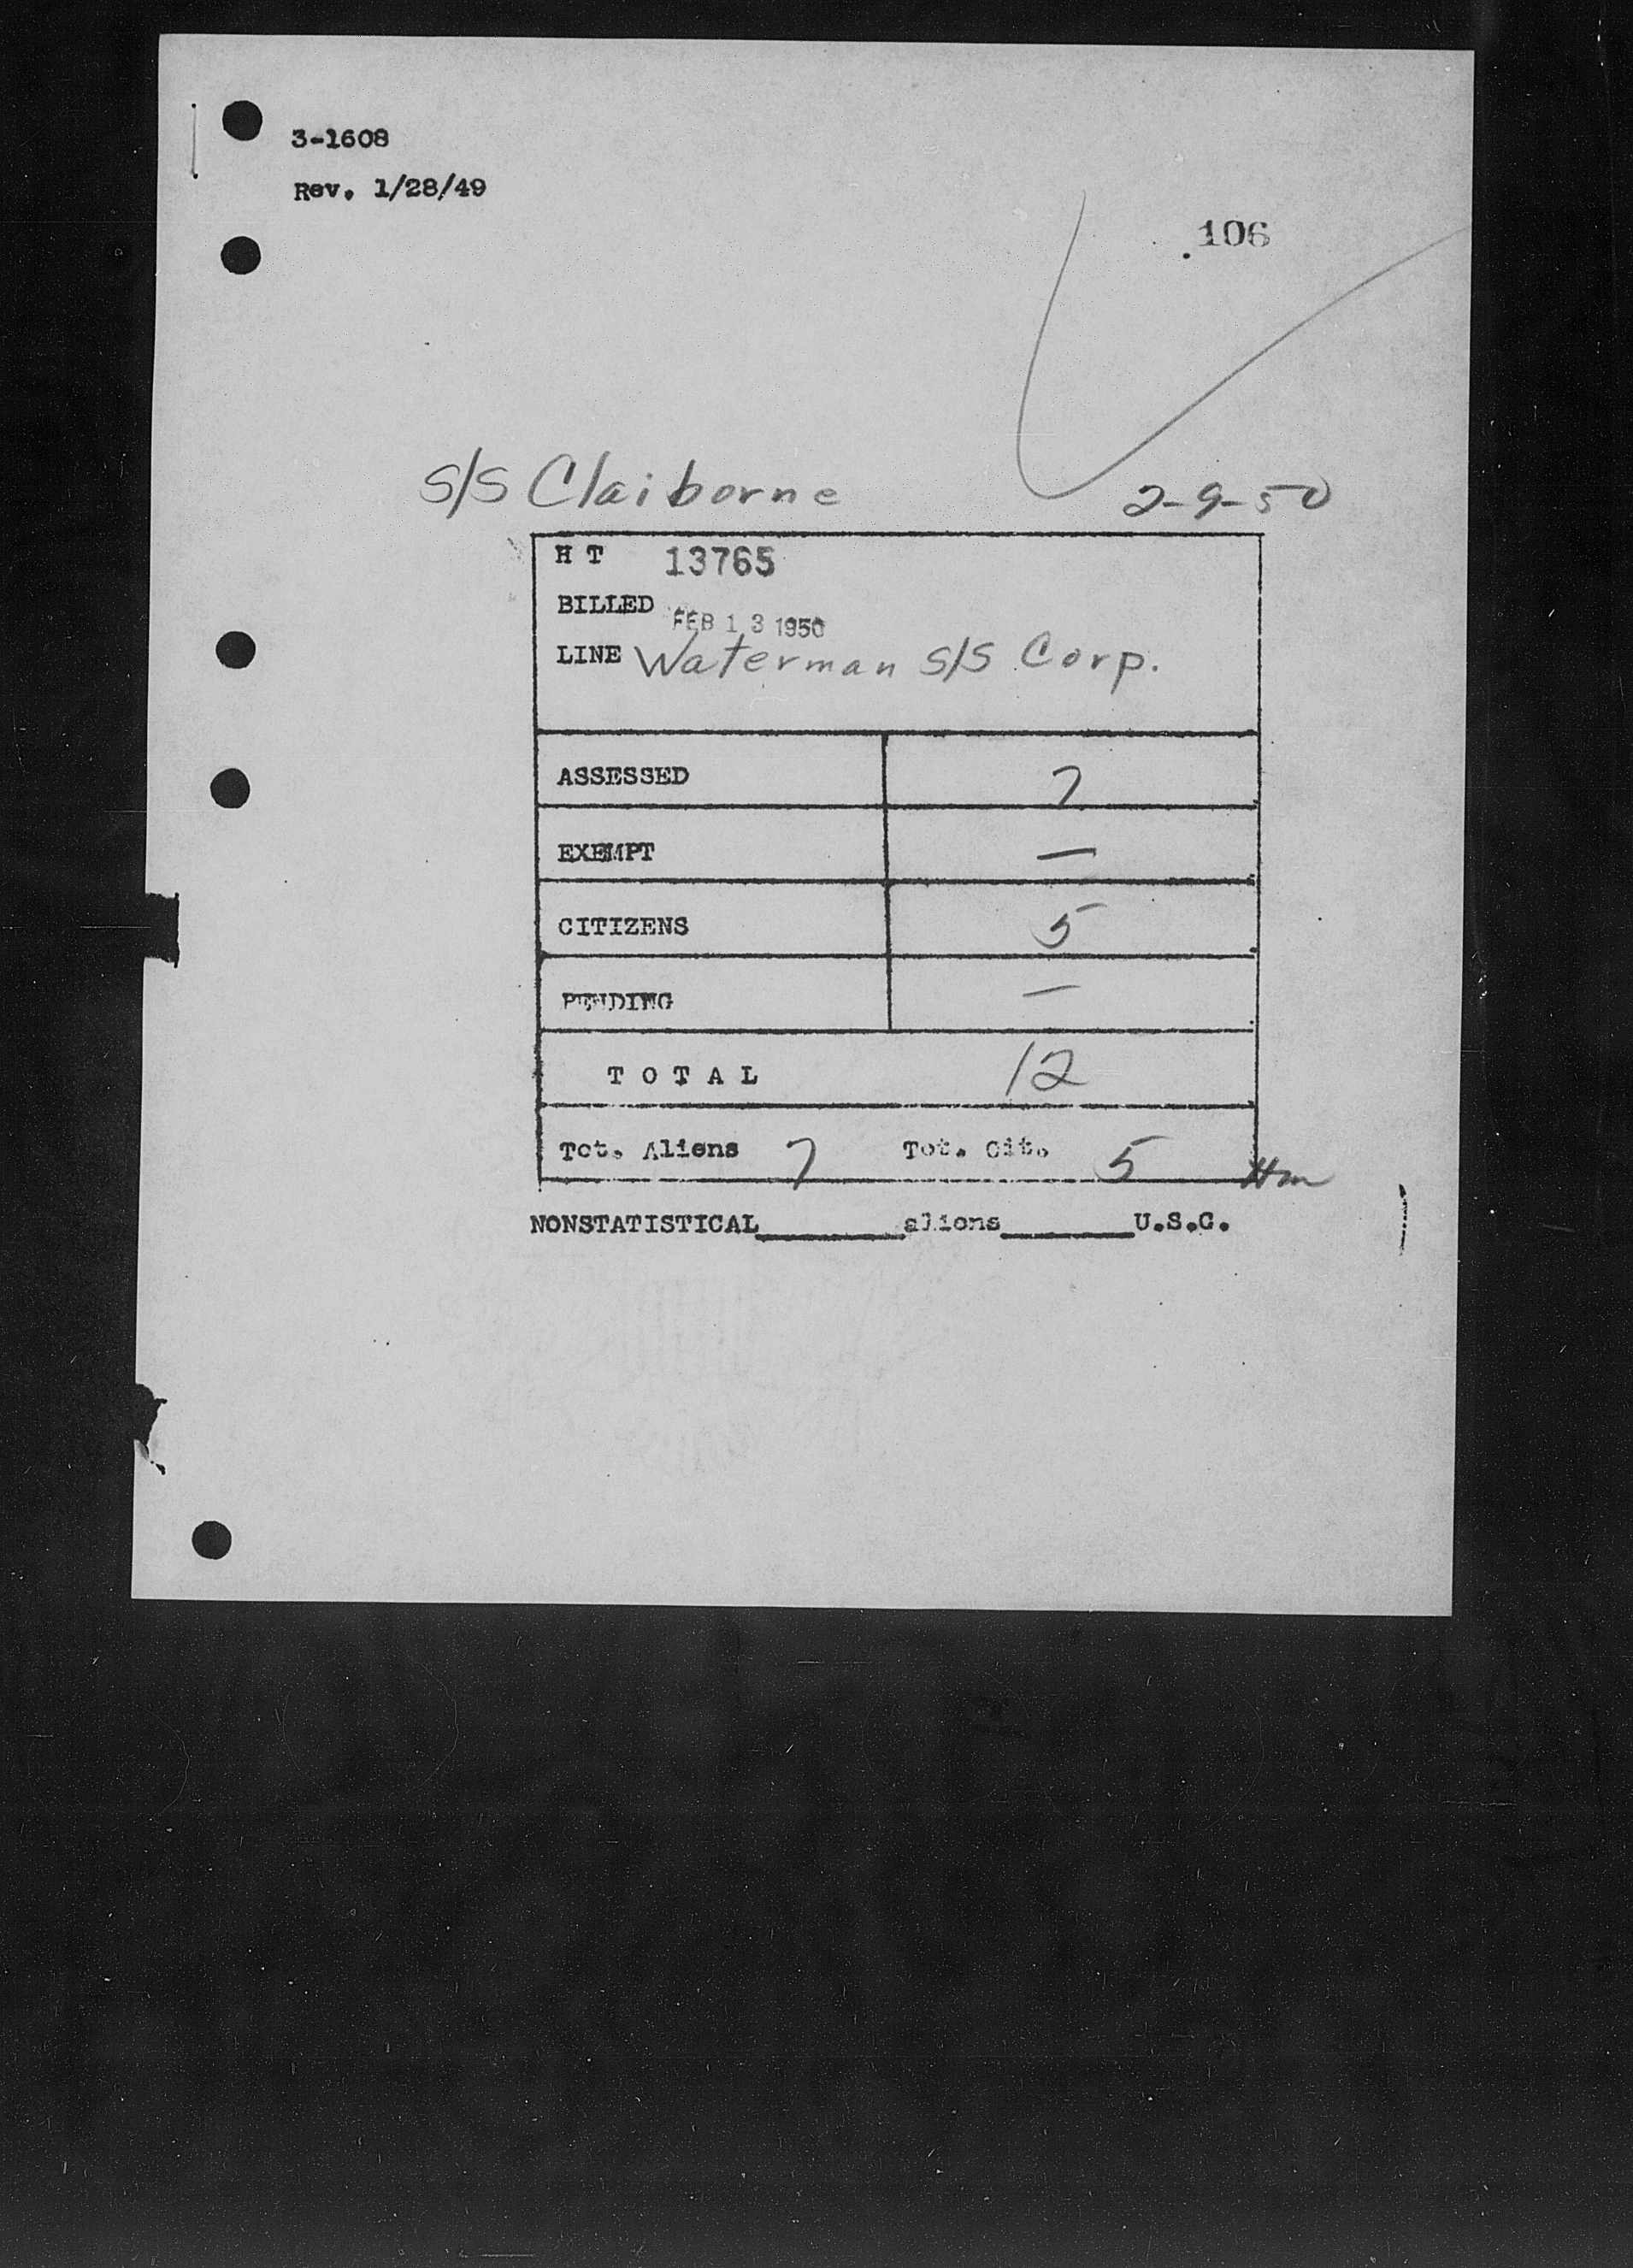 3-1608
Rev. 1/28/49
106
S/S Claiborne 2-9-50
H T 13765
BILLED FEB 13 1950
LINE Waterman S/S Corp.
ASSESSED 7
EXEMPT —
CITIZENS 5
PENDING —
T O T A L 12
Tot. Aliens 7 Tot. Cit. 5
NONSTATISTICAL________aliens_______U.S.C.